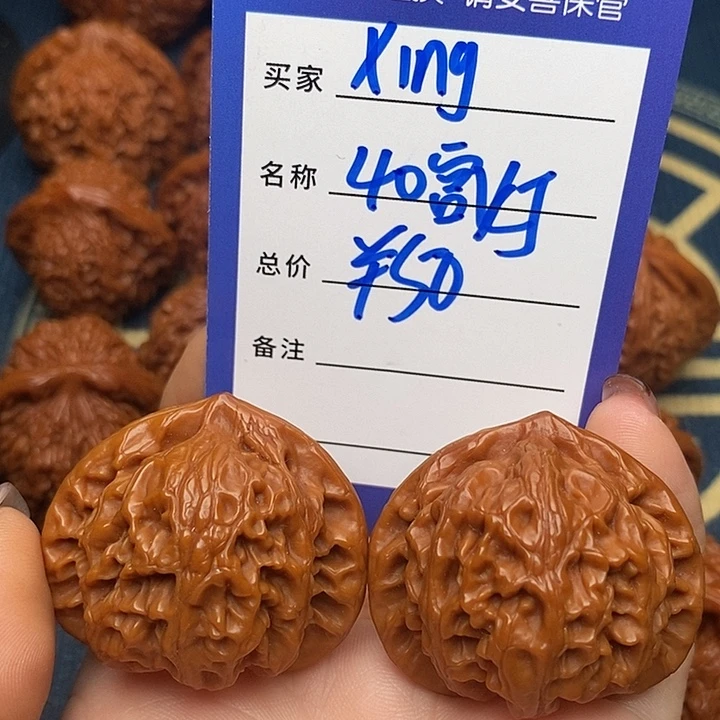 请妥善保管
买家 Xing
名称 40宫灯
总价 ¥50
备注